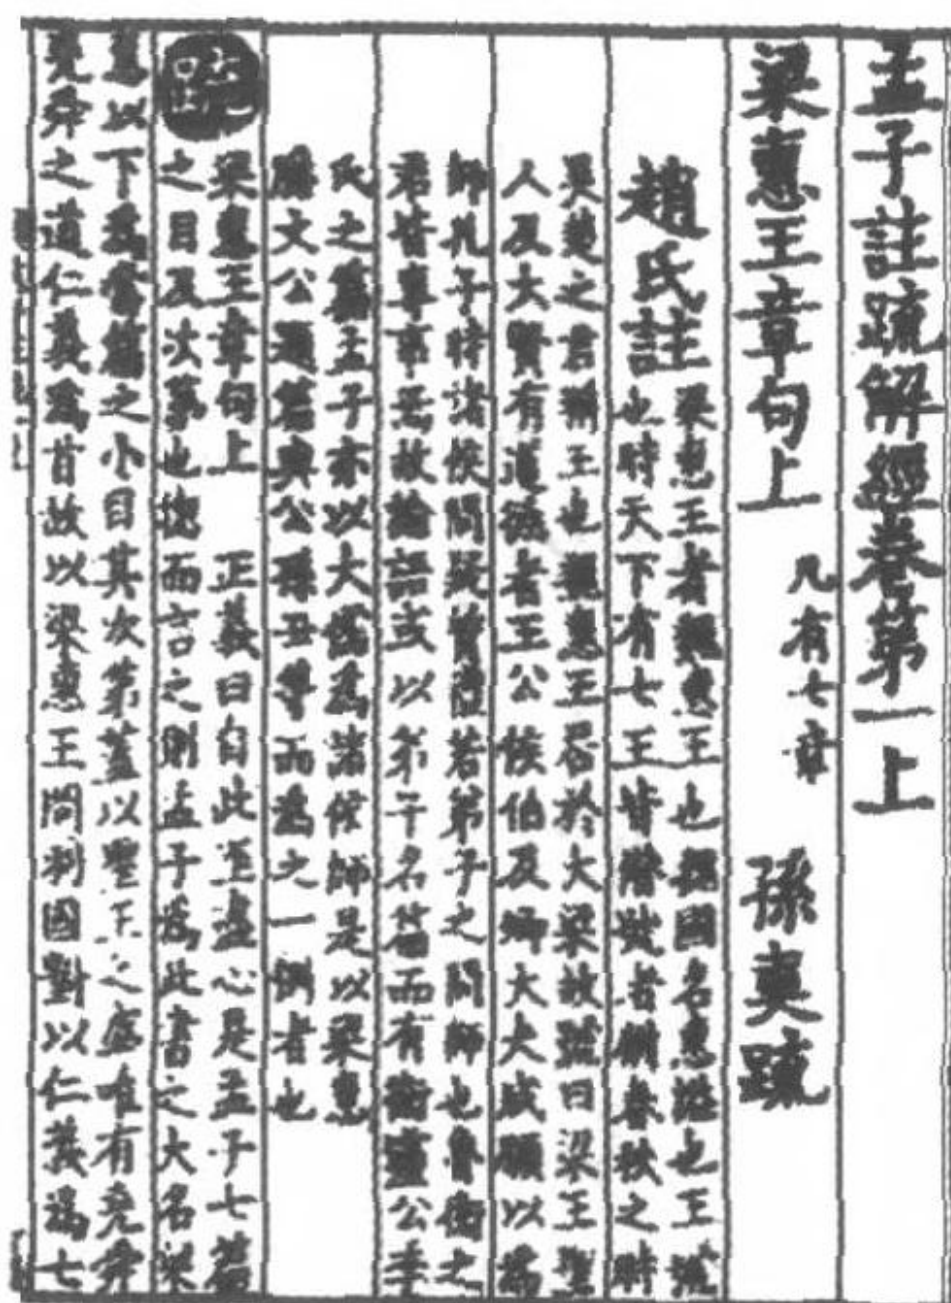 孟子註疏解經卷第一上
梁惠王章句上 凡有七章 孫奭疏
趙氏註 梁惠王者魏惠王也魏國名惠謚也王號
也時天下有七王皆僭號者猶春秋之時
吳楚之君稱王也魏惠王居於大梁故號曰梁王聖
人及大賢有道德者王公侯伯及卿大夫咸願以為
師孔子時諸侯問疑質禮若弟子之問師也魯衛之
君皆專事焉故論語或以弟子名篇而有衛靈公季
氏之篇孟子亦以大儒為諸侯師是以梁惠
滕文公題篇與公孫丑等而為之一例者也
疏 梁惠王章句上 正義曰自此至盡心是孟子七篇
之目及次第也總而言之則孟子為此書之大名梁
惠以下為當篇之小目其次第蓋以聖王之盛唯有堯舜
堯舜之道仁義為首故以梁惠王問利國對以仁義為七